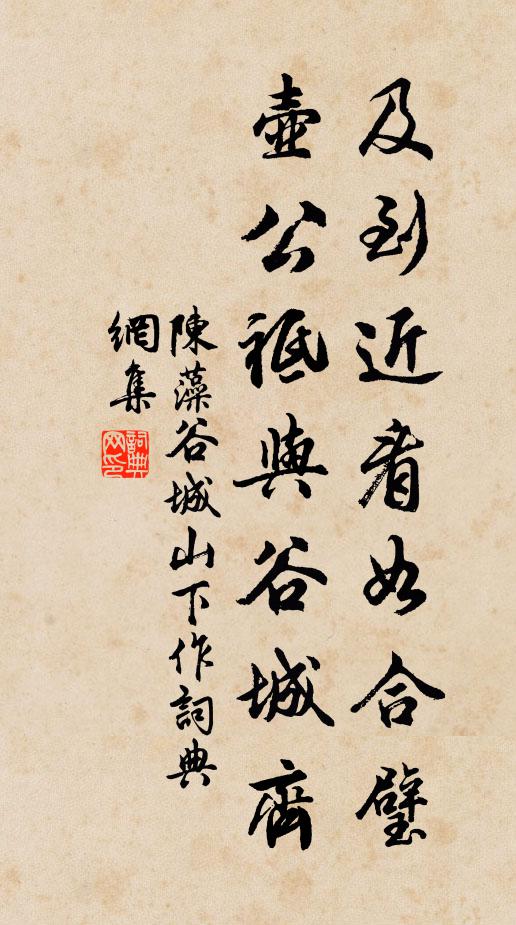 及到近看如合璧
壺公祗與谷城齊
陳藻谷城山下作詞典
網集
詞典
网印